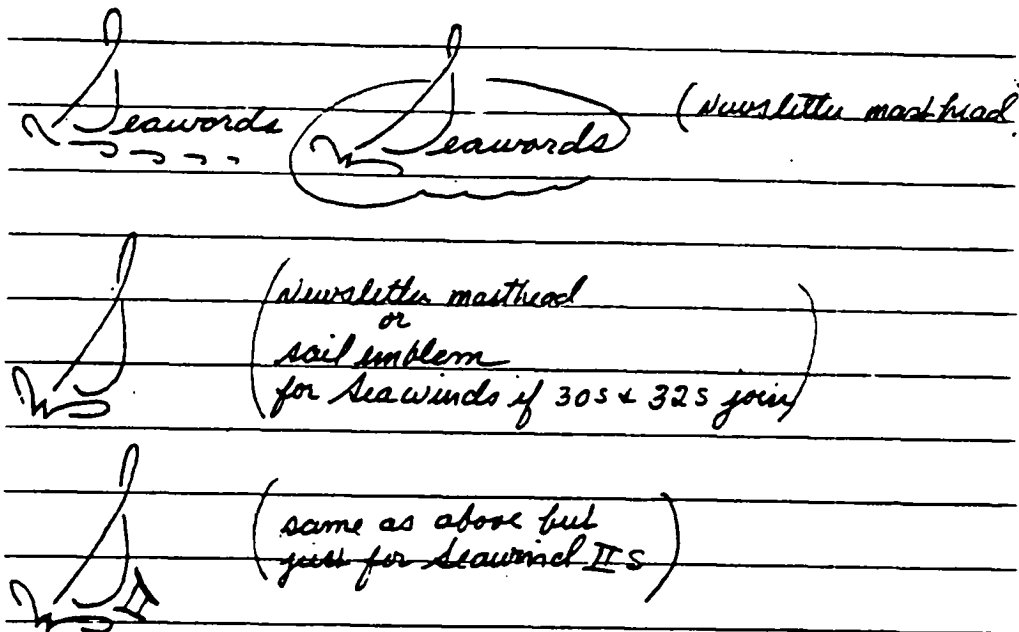 Seawords Seawords (Newsletter masthead
S (Newsletter masthead
or
sail emblem
for Seawinds if 30s & 32s join)
S II (same as above but
just for Seawind II s)